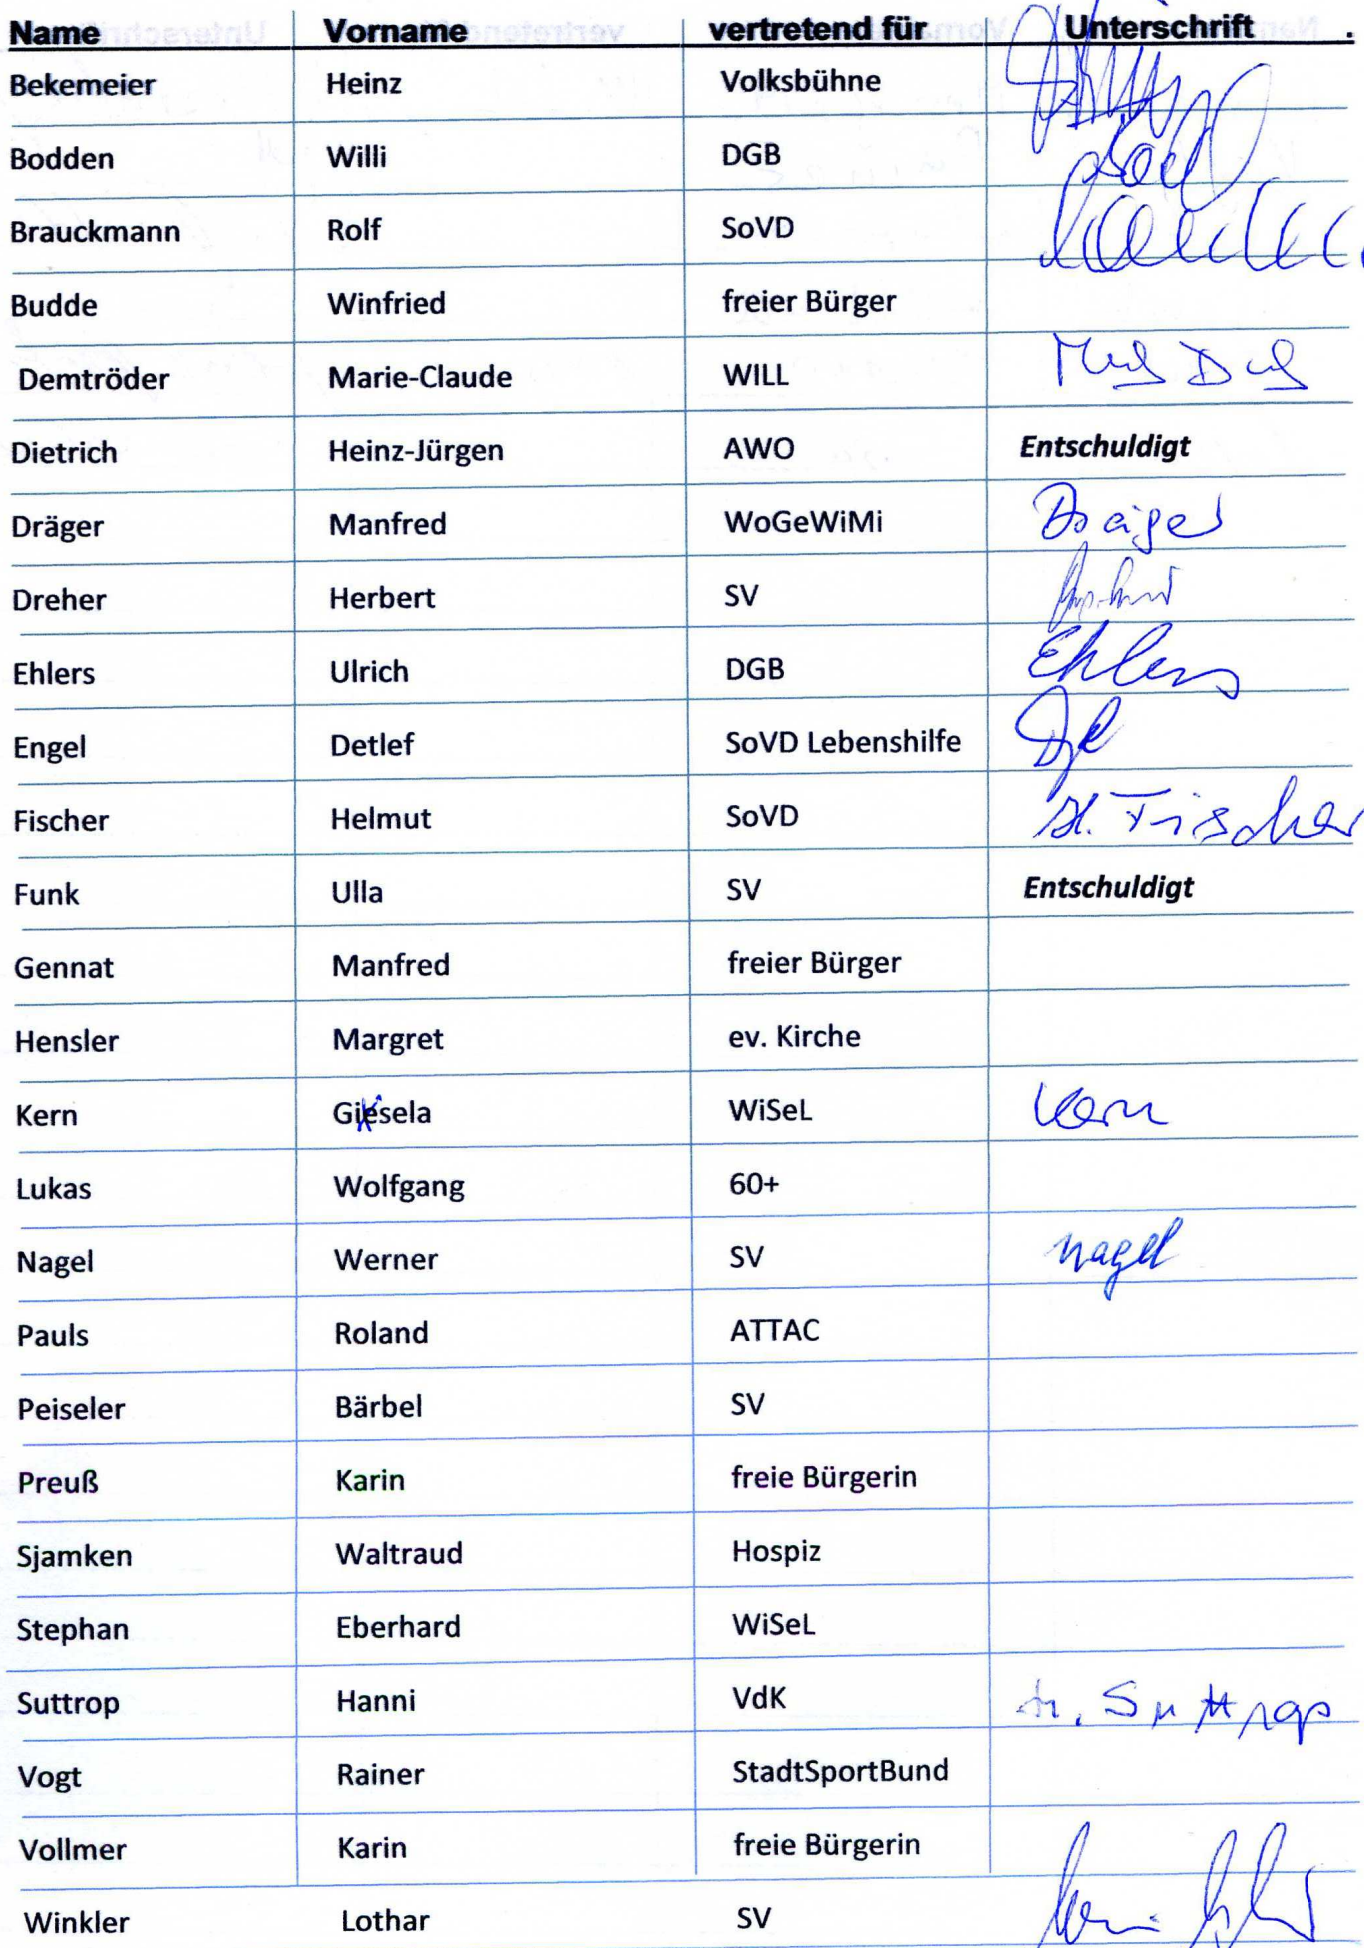 Name Vorname vertretend für Unterschrift .
Bekemeier Heinz Volksbühne
Bodden Willi DGB
Brauckmann Rolf SoVD
Budde Winfried freier Bürger
Demtröder Marie-Claude WILL
Dietrich Heinz-Jürgen AWO Entschuldigt
Dräger Manfred WoGeWiMi Dräger
Dreher Herbert SV
Ehlers Ulrich DGB Ehlers
Engel Detlef SoVD Lebenshilfe
Fischer Helmut SoVD H. Fischer
Funk Ulla SV Entschuldigt
Gennat Manfred freier Bürger
Hensler Margret ev. Kirche
Kern Giesela WiSeL Kern
Lukas Wolfgang 60+
Nagel Werner SV Nagel
Pauls Roland ATTAC
Peiseler Bärbel SV
Preuß Karin freie Bürgerin
Sjamken Waltraud Hospiz
Stephan Eberhard WiSeL
Suttrop Hanni VdK H. Suttrop
Vogt Rainer StadtSportBund
Vollmer Karin freie Bürgerin
Winkler Lothar SV